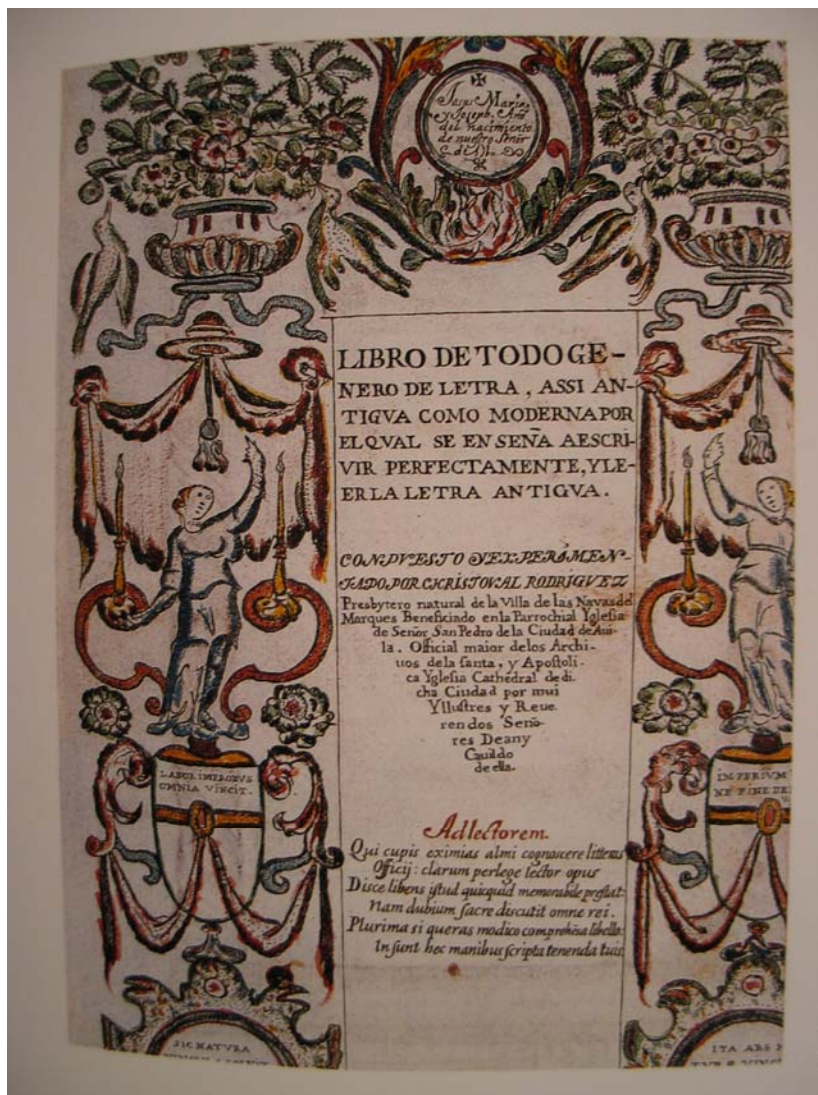 Jesus Maria,
y Joseph. Año
del nacimiento
de nuestro Señor
LIBRO DE TODO GE-
NERO DE LETRA, ASSI AN-
TIGVA COMO MODERNA POR
EL QVAL SE EN SEÑA A ESCRI-
VIR PERFECTAMENTE, Y LE-
ER LA LETRA ANTIGVA.
CONPVESTO Y EXPERIMEN-
TADO POR CHRISTOVAL RODRIGVEZ
Presbytero natural de la Villa de las Navas del
Marques Beneficiado en la Parrochial Yglesia
de Señor San Pedro de la Ciudad de Aui-
la. Official maior de los Archi-
uos de la santa, y Apostoli-
ca Yglesia Cathedral de di-
cha Ciudad por mui
Yllustres y Reue.
rendos Seño-
res Dean y
Cauildo
de ella.
LABOR IMPROBVS
OMNIA VINCIT.
IMPERIUM
NE FINE DE
Ad lectorem.
Qui cupis eximias almi cognoscere litteras
Officij: clarum perlege lector opus
Disce libens istud quicquid memorabile prestat:
Nam dubium sacre discutit omne rei.
Plurima si queras modico comprehesa libello:
In sunt hec manibus scripta tenenda tuis
SIC NATVRA
ITA ARS